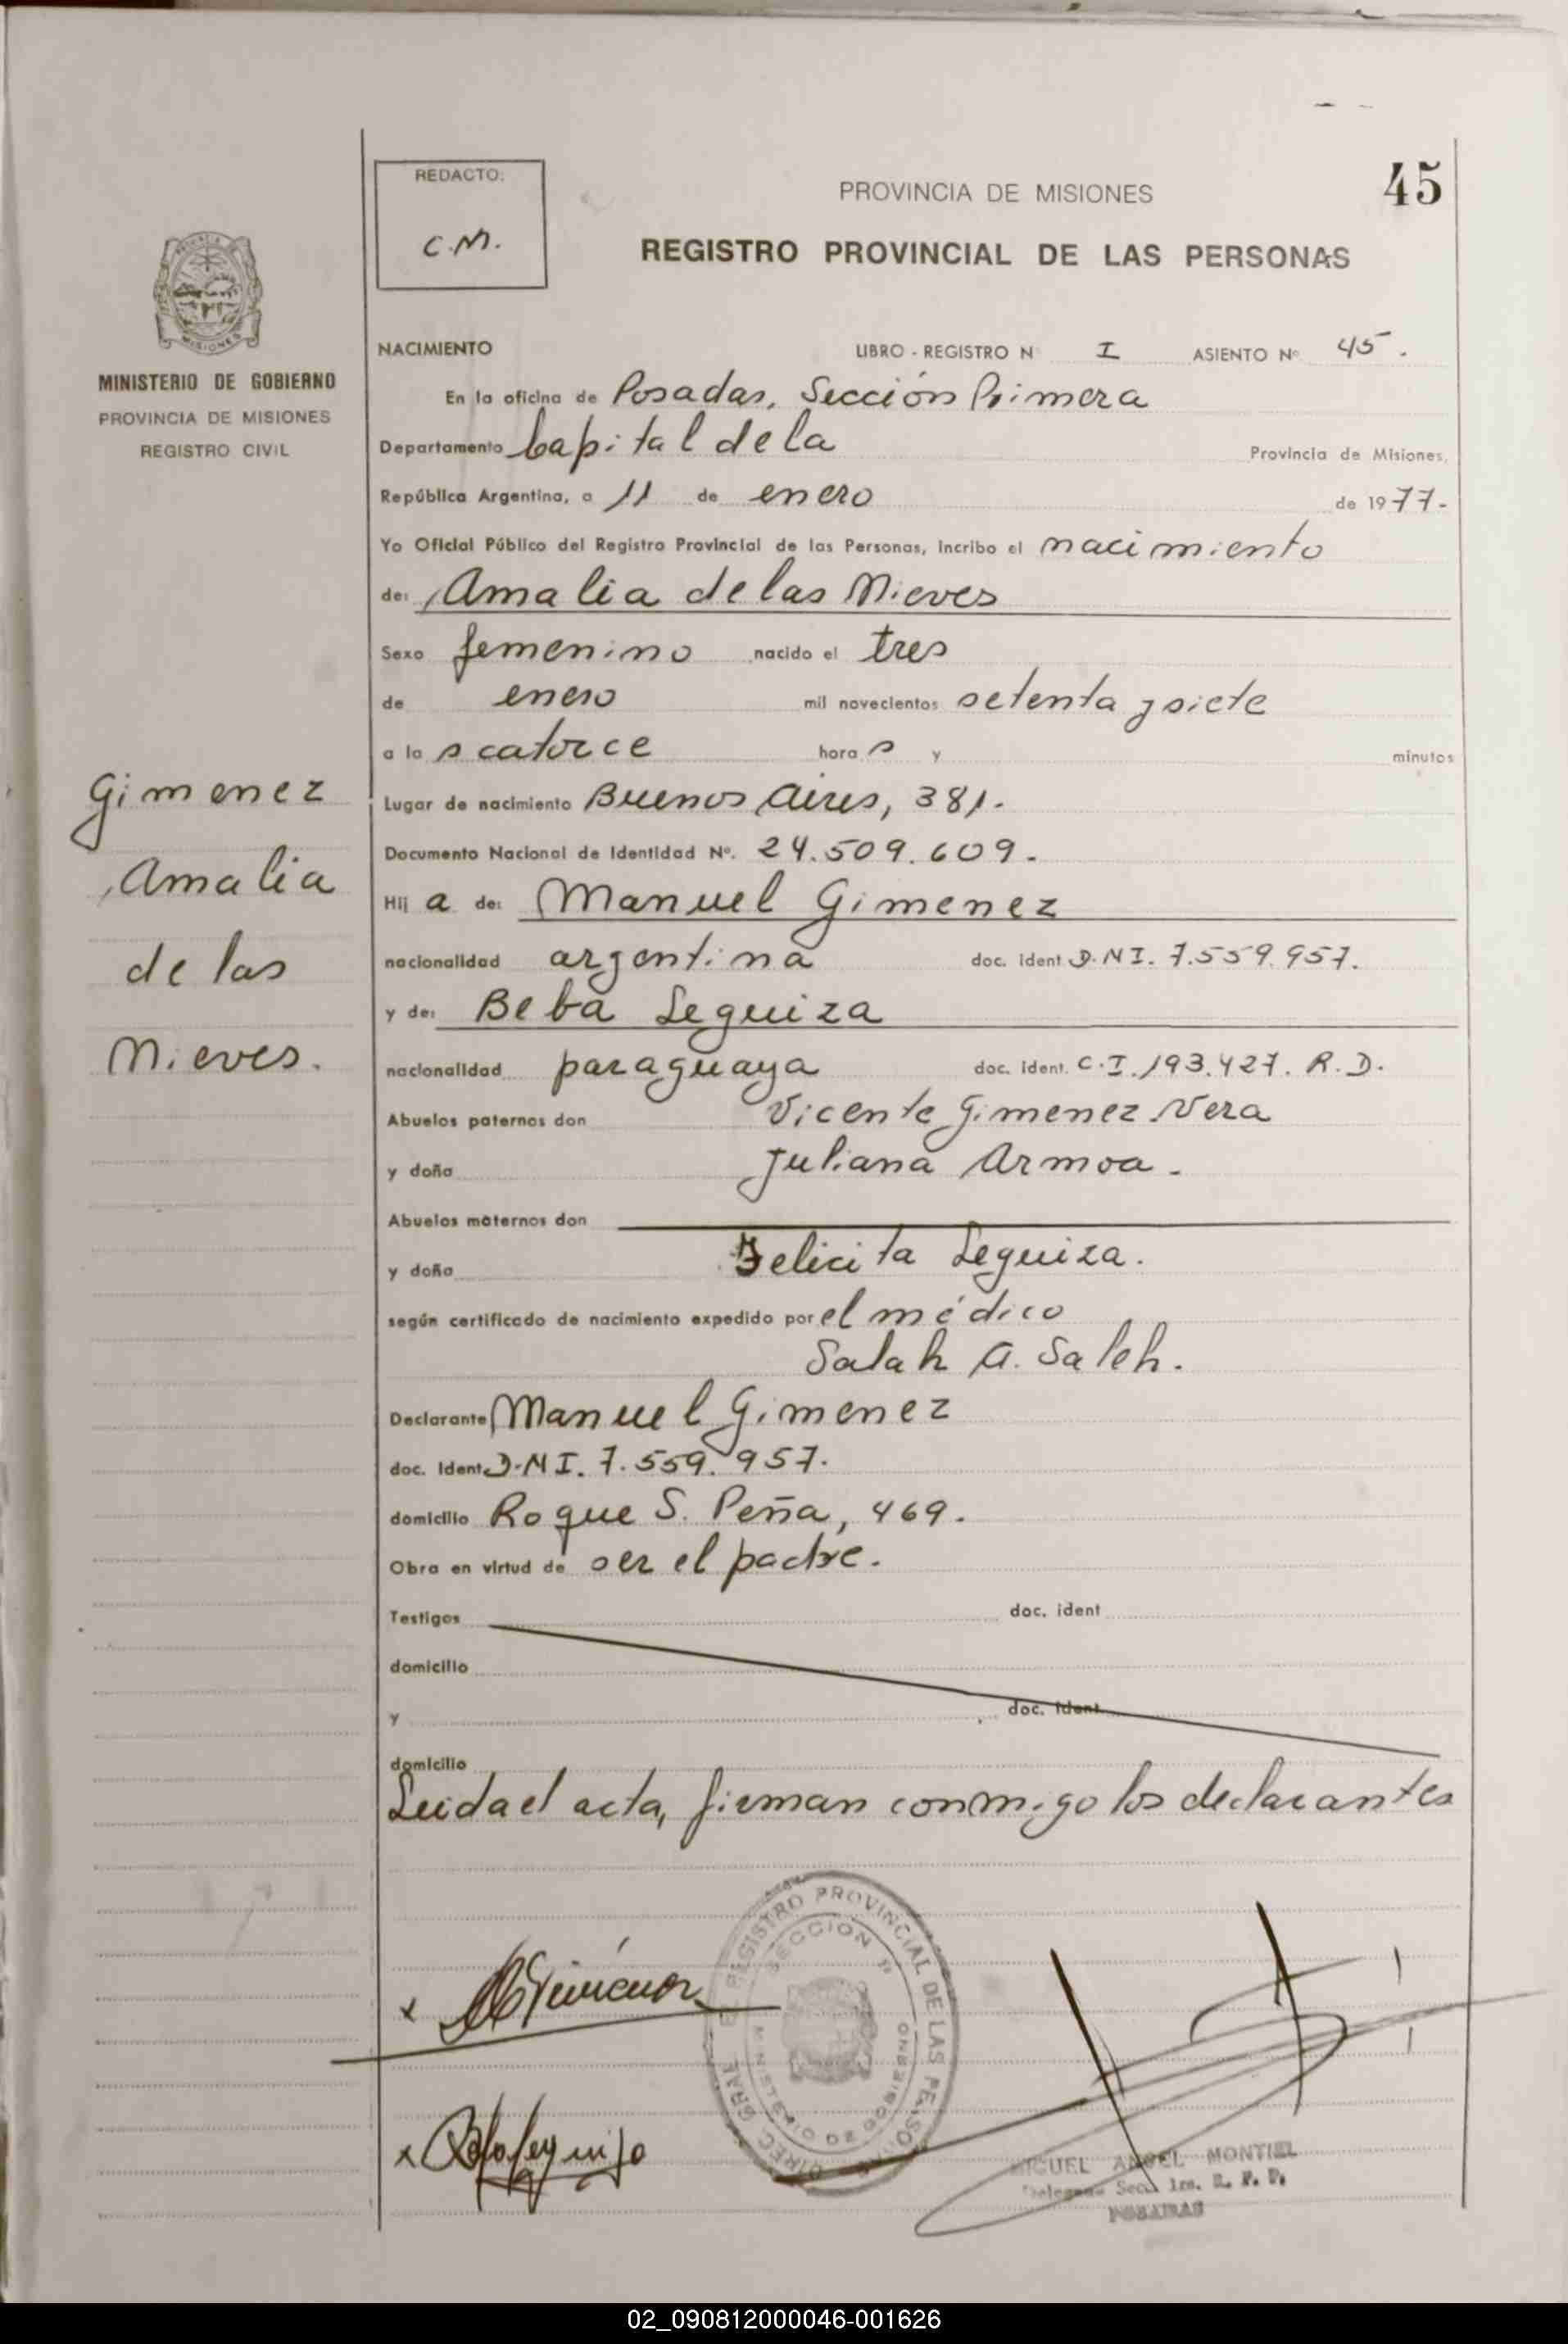 45
REDACTO:
C.M.
PROVINCIA DE MISIONES
REGISTRO PROVINCIAL DE LAS PERSONAS
MINISTERIO DE GOBIERNO
PROVINCIA DE MISIONES
REGISTRO CIVIL
Gimenez
Amalia
de las
Nieves.
NACIMIENTO LIBRO - REGISTRO Nº I ASIENTO Nº 45.
En la oficina de Posadas, Sección Primera
Departamento Capital de la Provincia de Misiones,
República Argentina, a 11 de enero de 1977-
Yo Oficial Público del Registro Provincial de las Personas, incribo el nacimiento
de: Amalia de las Nieves
Sexo femenino nacido el tres
de enero mil novecientos setenta y siete
a la s catorce hora s y minutos
Lugar de nacimiento Buenos Aires, 381.
Documento Nacional de Identidad Nº. 24.509.609.
Hij a de: Manuel Gimenez
nacionalidad argentina doc. ident D.N I. 7.559.957.
y de: Beba Leguiza
nacionalidad paraguaya doc. ident. C.I. 193.427. R.D.
Abuelos paternos don Vicente Gimenez Vera
y doña Juliana Armoa.
Abuelos maternos don
y doña Felicita Leguiza.
según certificado de nacimiento expedido por el médico
Salah A. Saleh.
Declarante Manuel Gimenez
doc. Ident D.N I. 7.559.957.
domicilio Roque S. Peña, 469.
Obra en virtud de ser el padre.
Testigos doc. ident
domicilio
y doc. ident
domicilio
Leida el acta, firman conmigo los declarantes
DIREC. GRAL. DEL REGISTRO PROVINCIAL DE LAS PERSONAS
SECCION 1ª
MINISTERIO DE GOBIERNO
MIGUEL ANGEL MONTIEL
Delegado Secc. 1ra. R. P. P.
POSADAS
02_090812000046-001626